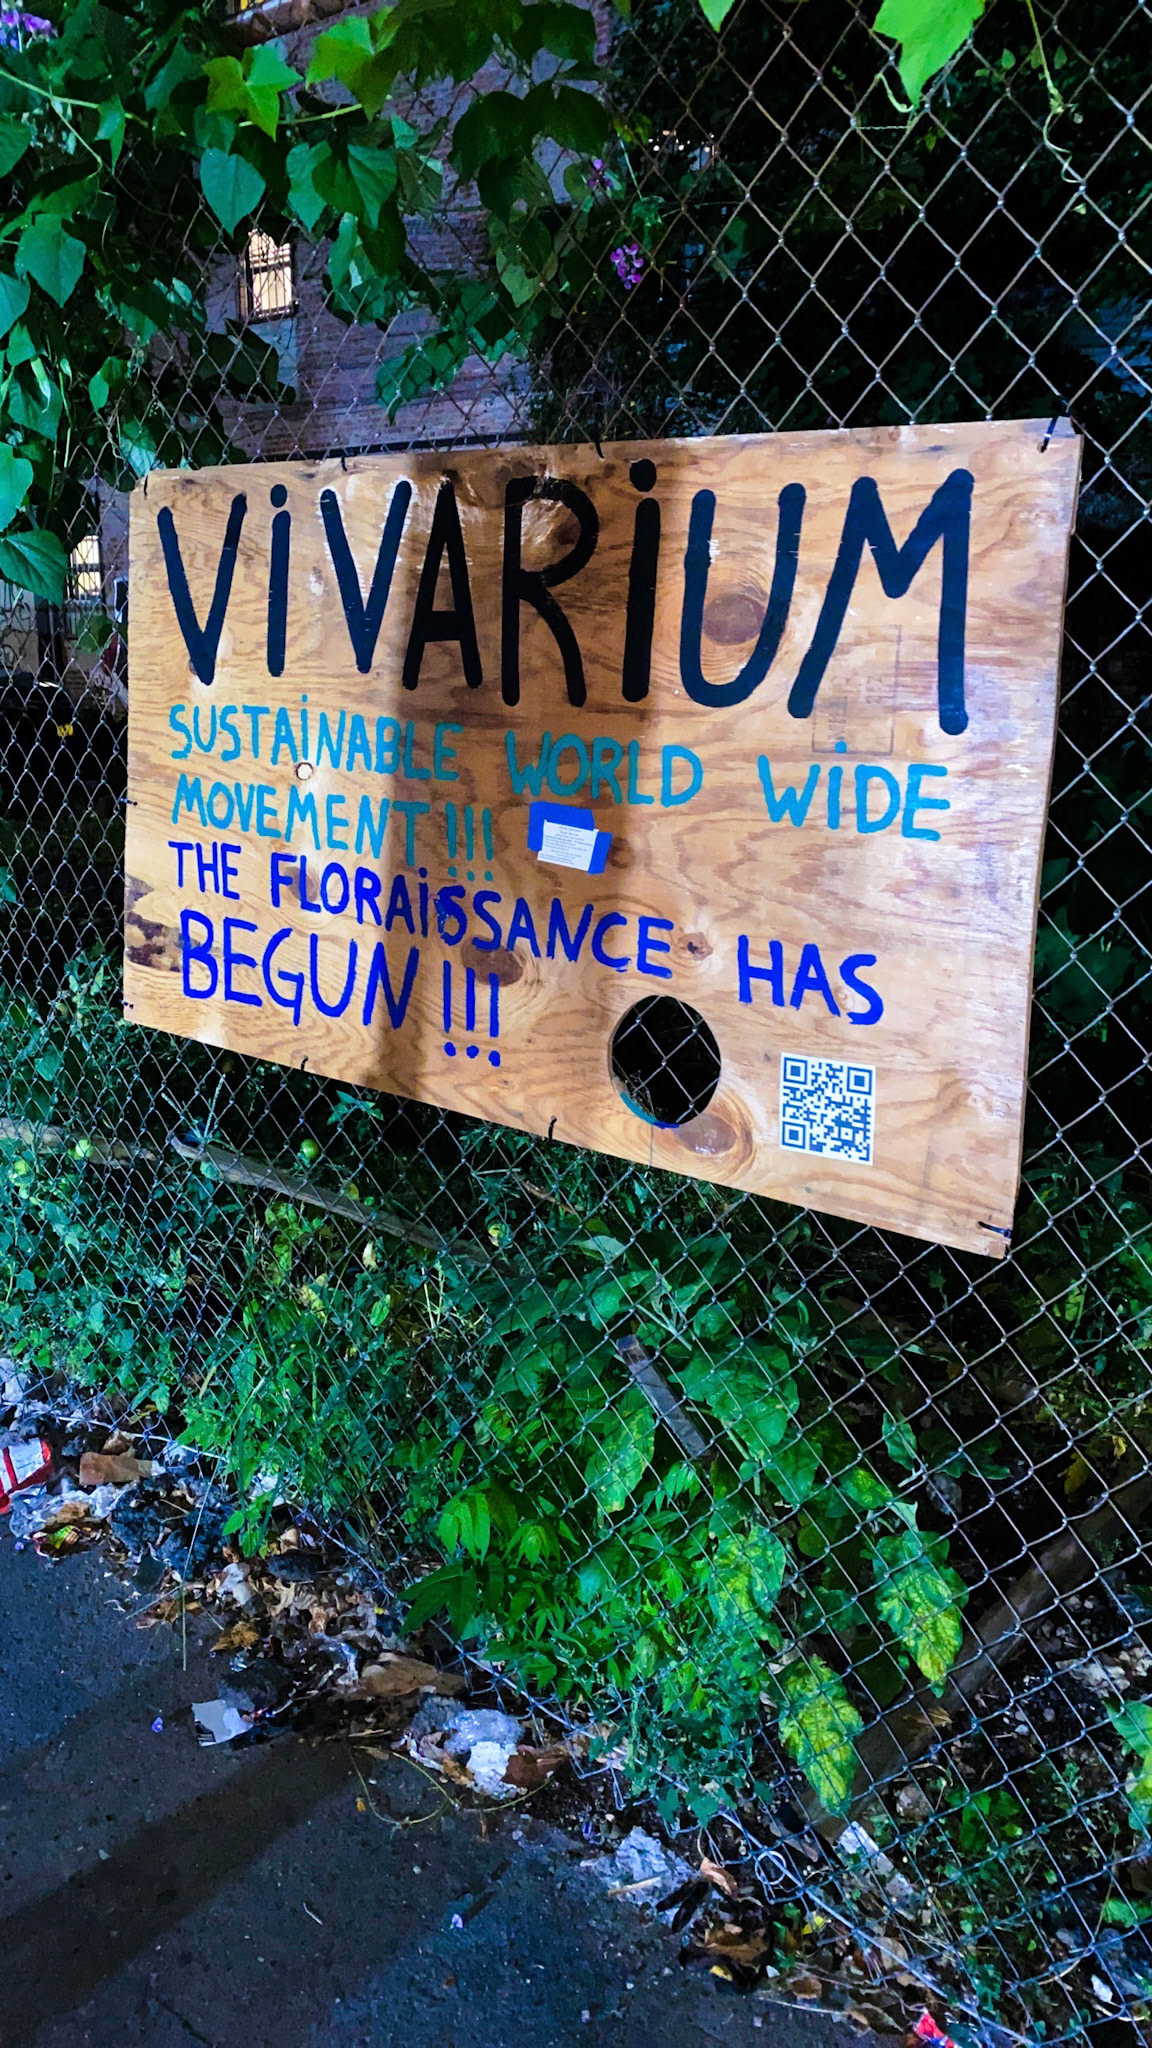 ViVARiUM
SUSTAiNABLE WORLD WiDE
MOVEMENT!!!
THE FLORAiSSANCE HAS
BEGUN!!!